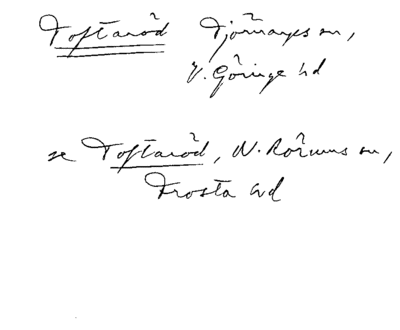 Toftaröd Tjörnarps sn,
V. Göinge hd
se Toftaröd, N. Rörums sn,
Frosta hd